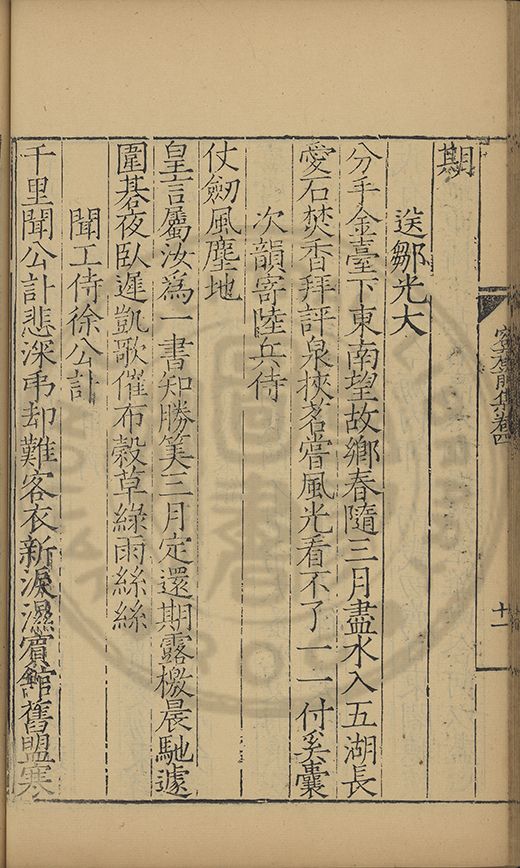 期
送鄒光大
分手金臺下東南望故鄉春隨三月盡水入五湖長
愛石焚香拜評泉挾茗嘗風光看不了一一付奚囊
次韻寄陸兵侍
仗劒風塵地
皇言屬汝為一書知勝筭三月定還期露檄晨馳遽
圍碁夜臥遲凱歌催布穀草綠雨絲絲
聞工侍徐公訃
千里聞公訃悲深弔却難客衣新淚濕賓館舊盟寒
集卷四
十一